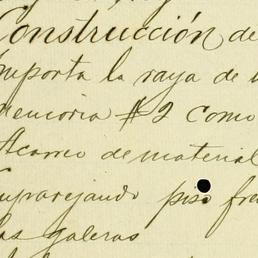 Construcción de
Importa la raya de
memoria #2 como
Acarreo de material
emparejando piso fre
las galeras